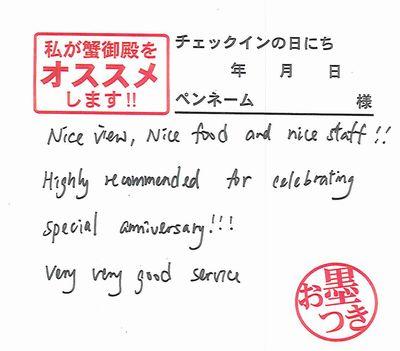 私が蟹御殿を
オススメ
します!!
チェックインの日にち
年 月 日
ペンネーム 様
Nice view, Nice food and nice staff!!
Highly recommended for celebrating
special anniversary!!!
Very very good service
お墨つき